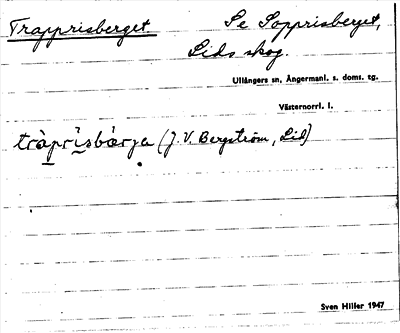 Trapprisberget. Se Sopprisberget,
Lids skog.
Ullångers sn, Ångermanl. s. doms. tg.
Västernorrl. l.
tràprìsbàrja (J. V. Bergström, Lid)
Sven Hiller 1947